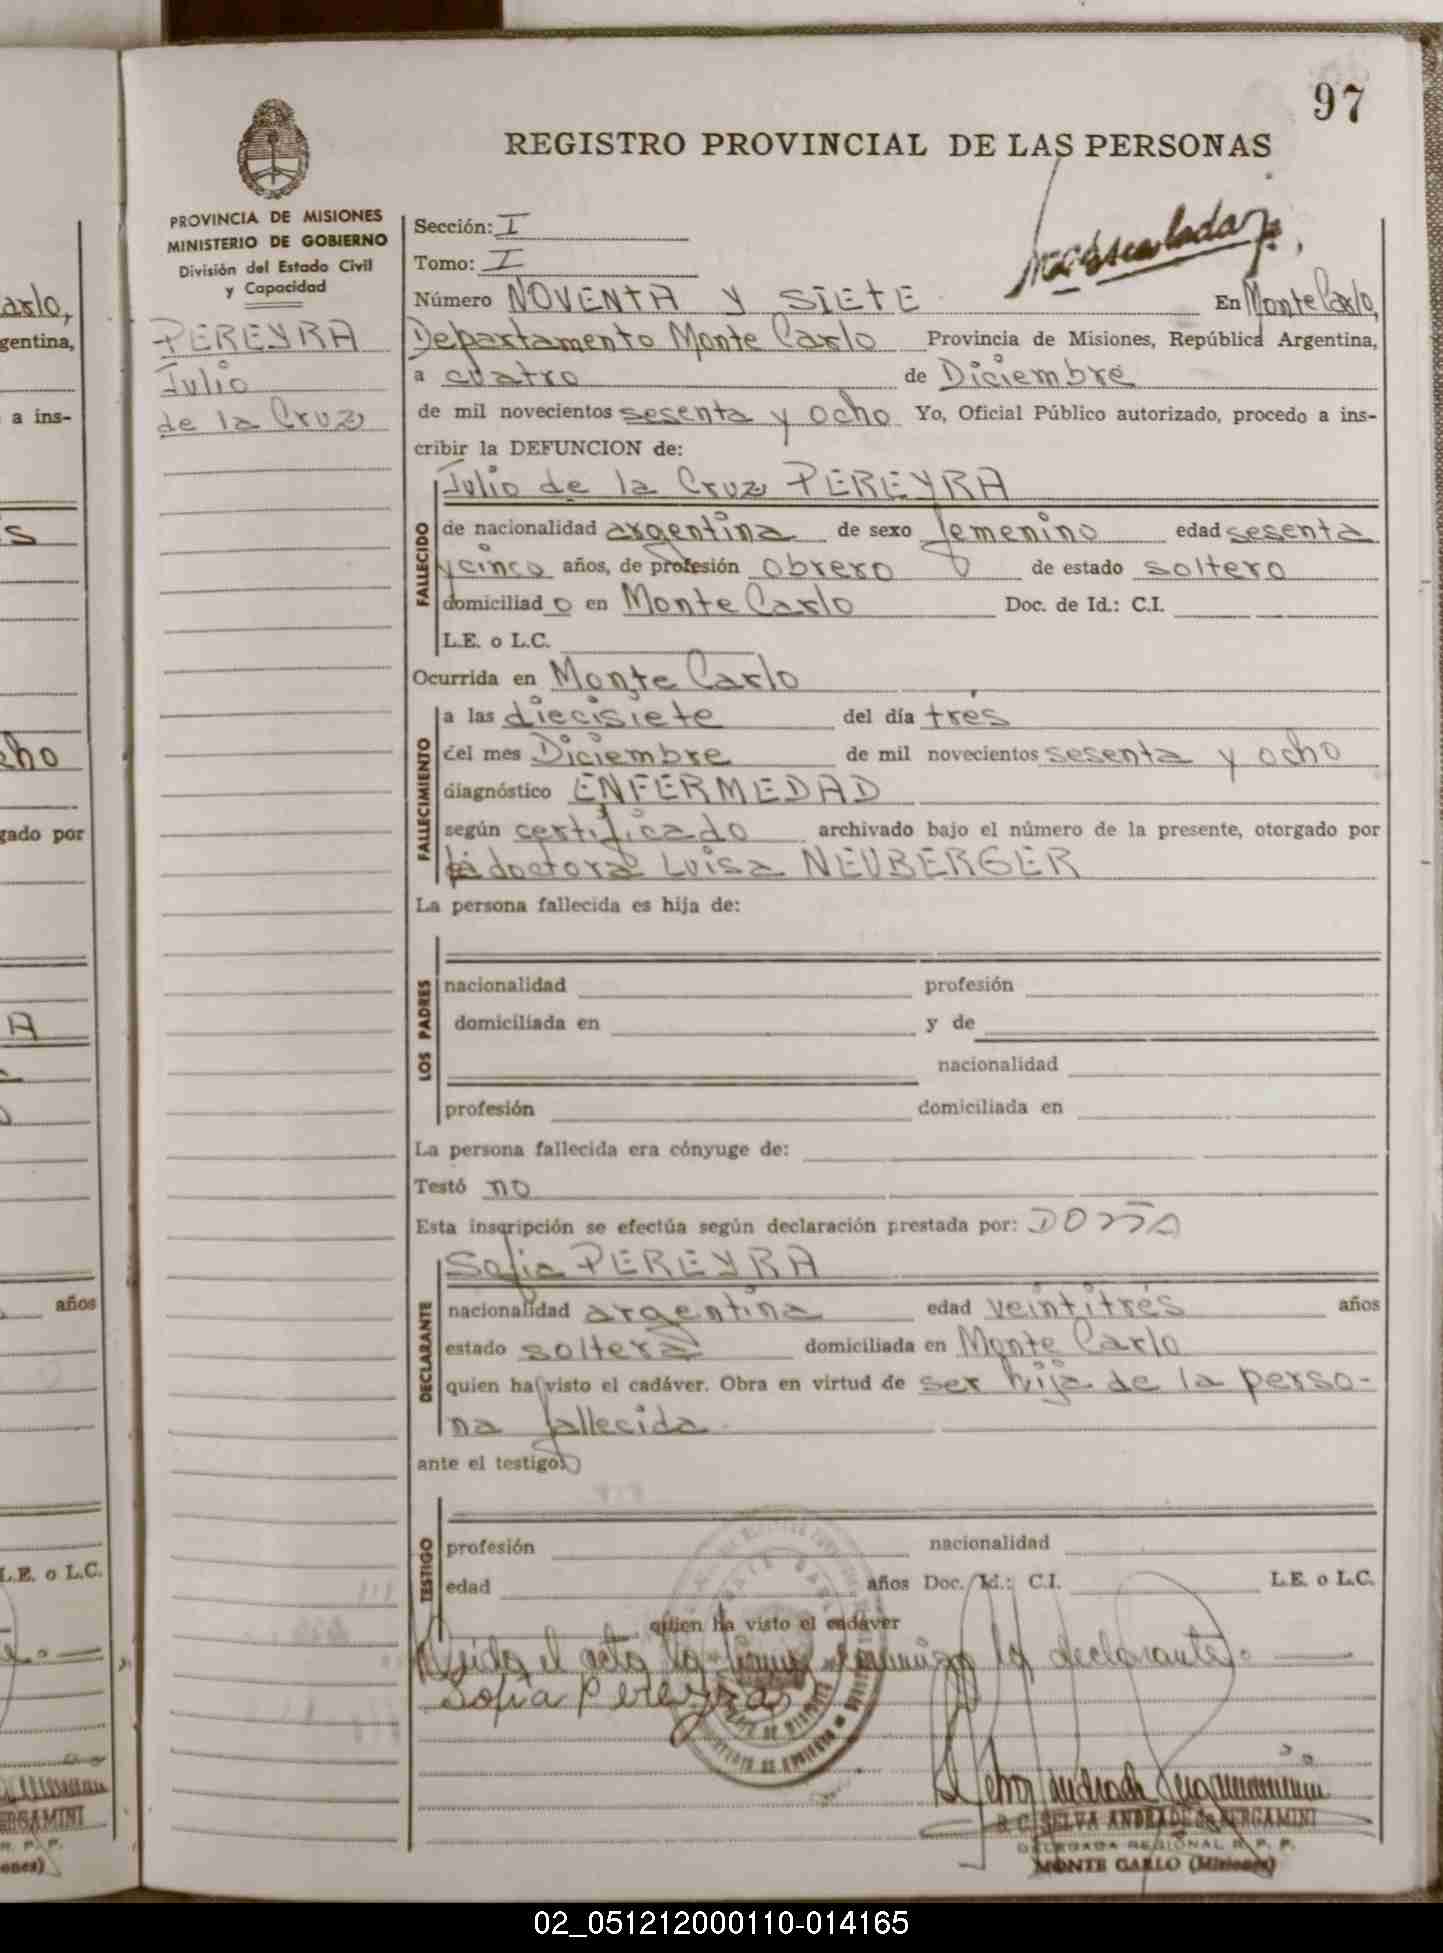 97
REGISTRO PROVINCIAL DE LAS PERSONAS
PROVINCIA DE MISIONES
MINISTERIO DE GOBIERNO
División del Estado Civil
y Capacidad
PEREYRA
Julio
de la Cruz
Sección: I
Tomo: I
Número NOVENTA y SIETE En Monte Carlo,
Departamento Monte Carlo Provincia de Misiones, República Argentina,
a cuatro de Diciembre
de mil novecientos sesenta y ocho Yo, Oficial Público autorizado, procedo a ins-
cribir la DEFUNCION de:
Julio de la Cruz PEREYRA
FALLECIDO
de nacionalidad argentina de sexo femenino edad sesenta
y cinco años, de profesión obrero de estado soltero
domiciliad o en Monte Carlo Doc. de Id.: C.I.
L.E. o L.C.
Ocurrida en Monte Carlo
FALLECIMIENTO
a las diecisiete del día tres
del mes Diciembre de mil novecientos sesenta y ocho
diagnóstico ENFERMEDAD
según certificado archivado bajo el número de la presente, otorgado por
doctora Luisa NEUBERGER
La persona fallecida es hija de:
LOS PADRES
nacionalidad profesión
domiciliada en y de
nacionalidad
profesión domiciliada en
La persona fallecida era cónyuge de:
Testó no
Esta inscripción se efectúa según declaración prestada por: DOÑA
Sofia PEREYRA
DECLARANTE
nacionalidad argentina edad veintitrés años
estado soltera domiciliada en Monte Carlo
quien ha visto el cadáver. Obra en virtud de ser hija de la perso-
na fallecida
ante el testigo:
TESTIGO
profesión nacionalidad
edad años Doc. Id.: C.I. L.E. o L.C.
quien ha visto el cadáver
Leída el acta la firma conmigo la declarante.
Sofia Pereyra
SELVA ANDRADE de BERGAMINI
DELEGADA REGIONAL R. P. P.
MONTE CARLO (Misiones)
arlo,
gentina,
a ins-
cho
gado por
A
años
L.E. o L.C.
BERGAMINI
R. P. P.
ones)
02_051212000110-014165